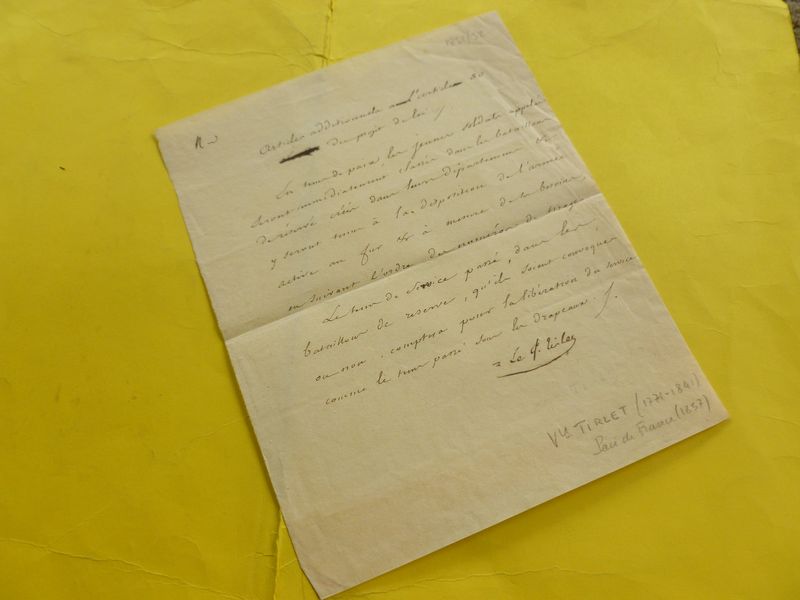 1831/32
Articles additionnels à l'article 20
du projet de loi
En tems de paix, les jeunes soldats appelés
seront immédiatement classés dans les bataillons
de réserve créés dans leurs départemens et
y seront tenus à la disposition de l'armée
active au fur et à mesure de ses besoins,
en suivant l'ordre des numéros de tirage.
Le tems de service passé, dans les
bataillons de réserve, qu'ils soient convoqués
ou non, comptera pour la libération du service
comme le tems passé sous les drapeaux.
Le G. Tirlet
Vte TIRLET (1771-1841)
Pair de France (1837)